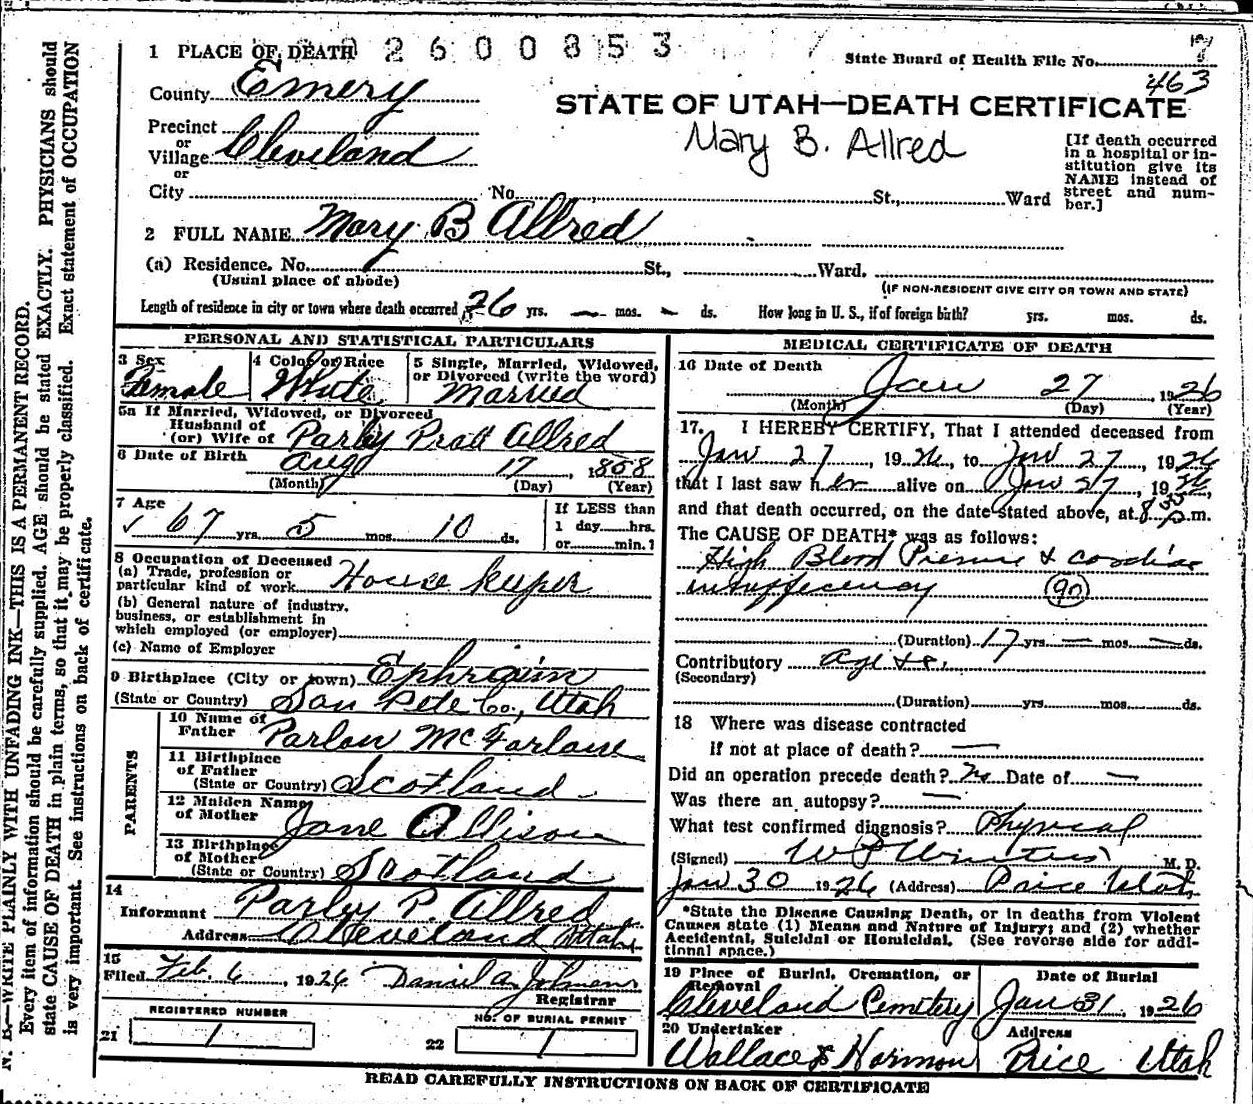 1 PLACE OF DEATH 2600853
State Board of Health File No. 7
463
County Emery
STATE OF UTAH—DEATH CERTIFICATE
Mary B. Allred
Precinct
or
Village Cleveland
or
City No. St., Ward
[If death occurred
in a hospital or in-
stitution give its
NAME instead of
street and num-
ber.]
2 FULL NAME Mary B Allred
(a) Residence. No. St., Ward.
(Usual place of abode)
(IF NON-RESIDENT GIVE CITY OR TOWN AND STATE)
Length of residence in city or town where death occurred 26 yrs. — mos. — ds. How long in U. S., if of foreign birth? yrs. mos. ds.
PERSONAL AND STATISTICAL PARTICULARS
3 Sex
Female
4 Color or Race
White
5 Single, Married, Widowed,
or Divorced (write the word)
Married
5a If Married, Widowed, or Divorced
Husband of
(or) Wife of Parley Pratt Allred
6 Date of Birth
Aug 17, 1858
(Month) (Day) (Year)
7 Age
67 yrs. 5 mos. 10 ds.
If LESS than
1 day hrs.
or min.?
8 Occupation of Deceased
(a) Trade, profession or
particular kind of work House keeper
(b) General nature of industry,
business, or establishment in
which employed (or employer)
(c) Name of Employer
9 Birthplace (City or town) Ephraim
(State or Country) San Pete Co., Utah
PARENTS
10 Name of
Father Parlan McFarlane
11 Birthplace
of Father
(State or Country) Scotland
12 Maiden Name
of Mother Jane Allison
13 Birthplace
of Mother
(State or Country) Scotland
14
Informant Parley P. Allred
Address Cleveland Utah
15
Filed Feb. 6, 1926
Registrar
REGISTERED NUMBER
21 1
NO. OF BURIAL PERMIT
22 1
MEDICAL CERTIFICATE OF DEATH
16 Date of Death
Jan 27, 1926
(Month) (Day) (Year)
17. I HEREBY CERTIFY, That I attended deceased from
Jan 27, 1926, to Jan 27, 1926
that I last saw her alive on Jan 27, 1926,
and that death occurred, on the date stated above, at 8 p.m.
The CAUSE OF DEATH* was as follows:
High Blood Pressure & cardiac
insufficiency 90
(Duration) 17 yrs. — mos. — ds.
Contributory age
(Secondary)
(Duration) yrs. mos. ds.
18 Where was disease contracted
if not at place of death? —
Did an operation precede death? No Date of —
Was there an autopsy? —
What test confirmed diagnosis? Physical
(Signed) M. D.
Jan 30 1926 (Address) Price Utah,
*State the Disease Causing Death, or in deaths from Violent
Causes state (1) Means and Nature of Injury; and (2) whether
Accidental, Suicidal or Homicidal. (See reverse side for addi-
tional space.)
19 Place of Burial, Cremation, or
Removal
Cleveland Cemetery
Date of Burial
Jan 31 1926
20 Undertaker
Wallace & Harmon
Address
Price Utah
READ CAREFULLY INSTRUCTIONS ON BACK OF CERTIFICATE
N. B.—WRITE PLAINLY WITH UNFADING INK—THIS IS A PERMANENT RECORD.
Every item of information should be carefully supplied. AGE should be stated EXACTLY. PHYSICIANS should
state CAUSE OF DEATH in plain terms, so that it may be properly classified. Exact statement of OCCUPATION
is very important. See instructions on back of certificate.